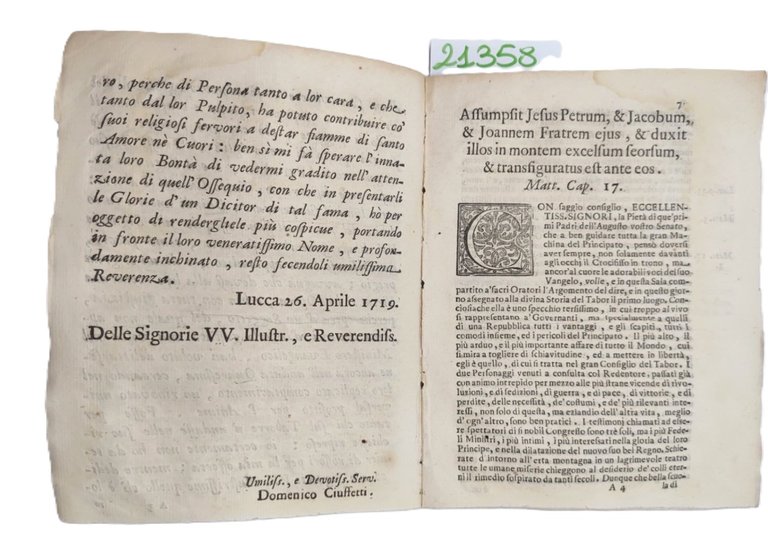 21358
ro, perche di Persona tanto a lor cara, e che
tanto dal lor Pulpito, ha potuto contribuire co'
suoi religiosi fervori a destar fiamme di santo
Amore nè Cuori: ben sì mi fà sperare l'inna-
ta loro Bontà di vedermi gradito nell'atten-
zione di quell'Ossequio, con che in presentarli
le Glorie d'un Dicitor di tal fama, hò per
oggetto di rendergliele più cospicue, portando
in fronte il loro veneratissimo Nome, e profon-
damente inchinato, resto fecendoli umilissima
Reverenza.
Lucca 26. Aprile 1719.
Delle Signorie VV. Illustr., e Reverendiss.
Umiliss., e Devotiss. Serv.
Domenico Ciuffetti.
7
Assumpsit Jesus Petrum, & Jacobum,
& Joannem Fratrem ejus, & duxit
illos in montem excelsum seorsum,
& transfiguratus est ante eos.
Matt. Cap. 17.
CON saggio consiglio, ECCELLEN-
TISS. SIGNORI, la Pietà di que'pri-
mi Padri dell'Augusto vostro Senato,
che a ben guidare tutta la gran Ma-
china del Principato, pensò doversi
aver sempre, non solamente davanti
agli occhi il Crocifisso in trono, ma
ancor'al cuore le adorabili voci del suo
Vangelo, volle, e in questa Sala com-
partito a'sacri Oratori l'Argomento del dire, e in questo gior-
no assegnato alla divina Storia del Tabor il primo luogo. Con-
ciosiache ella è uno specchio tersissimo, in cui troppo al vivo
si rappresentano a' Governanti, ma specialmente a quelli
di una Republica tutti i vantaggi, e gli scapiti, tutti i
comodi insieme, ed i pericoli del Principato. Il più alto, il
più arduo, e il più importante affare di tutto il Mondo, cui
si mira a togliere di schiavitudine, ed a mettere in libertà,
egli è quello, di cui si tratta nel gran Consiglio del Tabor. I
due Personaggi venuti a consulta col Redentore, passati già
con animo intrepido per mezzo alle più strane vicende di rivo-
luzioni, e di sedizioni, di guerra, e di pace, di vittorie, e di
perdite, delle necessità, de' costumi, e de' più rilevanti inte-
ressi, non solo di questa, ma eziandio dell'altra vita, meglio
d'ogn'altro, sono ben pratici. I testimoni chiamati ad esse-
re spettatori di sì nobil Congresso sono tre soli, ma i più Fede-
li Ministri, i più intimi, i più interesati nella gloria del loro
Principe, e nella dilatazione del nuovo suo bel Regno. Schie-
rate d'intorno all'erta montagna in un lagrimevole teatro
tutte le umane miserie chieggono al desiderio de' colli eter-
ni il rimedio sospirato da tanti secoli. Dunque che bella scuo-
A 4
la di